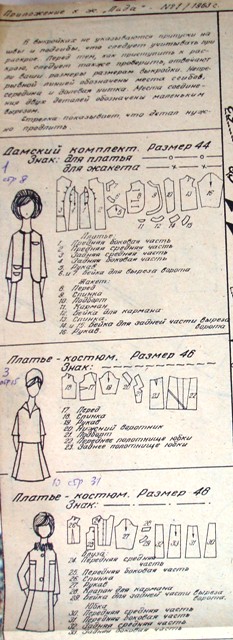 Приложение к ж. „Лада" - №1/1968 г.
В выкройках не указываются припуски на
швы и подгибы, что следует учитывать при
раскрое. Перед тем, как приступить к рас-
крою, следует также проверить, отвечают
ли вашим размерам выкройки.
линией обозначены места сгибов,
середина и долевая нитка. Места соедине-
ния двух деталей обозначены маленьким
вырезом.
Стрелка показывает, что деталь нуж-
но продлить
Дамский комплект. Размер 44
Знак: для платья
для жакета
1
стр 8
Платье:
1. Передняя боковая часть
2. Передняя средняя часть
3. Задняя средняя часть
4. Задняя боковая часть
5. Рукав
6 и 7 Бейка для выреза ворота
Жакет:
8 Перед
9 Спинка
10 Подборт
11 Карман
12 Бейка для кармана
13 Спинка
14 и 15 Бейка для задней части выреза
ворота
16 Рукав
Платье - костюм. Размер 46
Знак:
3
17 Перед
18 Спинка
19 Рукав
20 Нижний воротник
21 Подборт
22 Переднее полотнище юбки
23 Заднее полотнище юбки
стр. 31
Платье - костюм. Размер 46
Знак:
Блуза
24. Передняя средняя
часть
25. Передняя боковая часть
26 Спинка
27 Рукав
28 Клапан для кармана
29 Бейка для задней части выреза
ворота.
Юбка
30. Передняя средняя часть
31. Передняя боковая часть
32. Задняя средняя часть
33. Задняя боковая часть